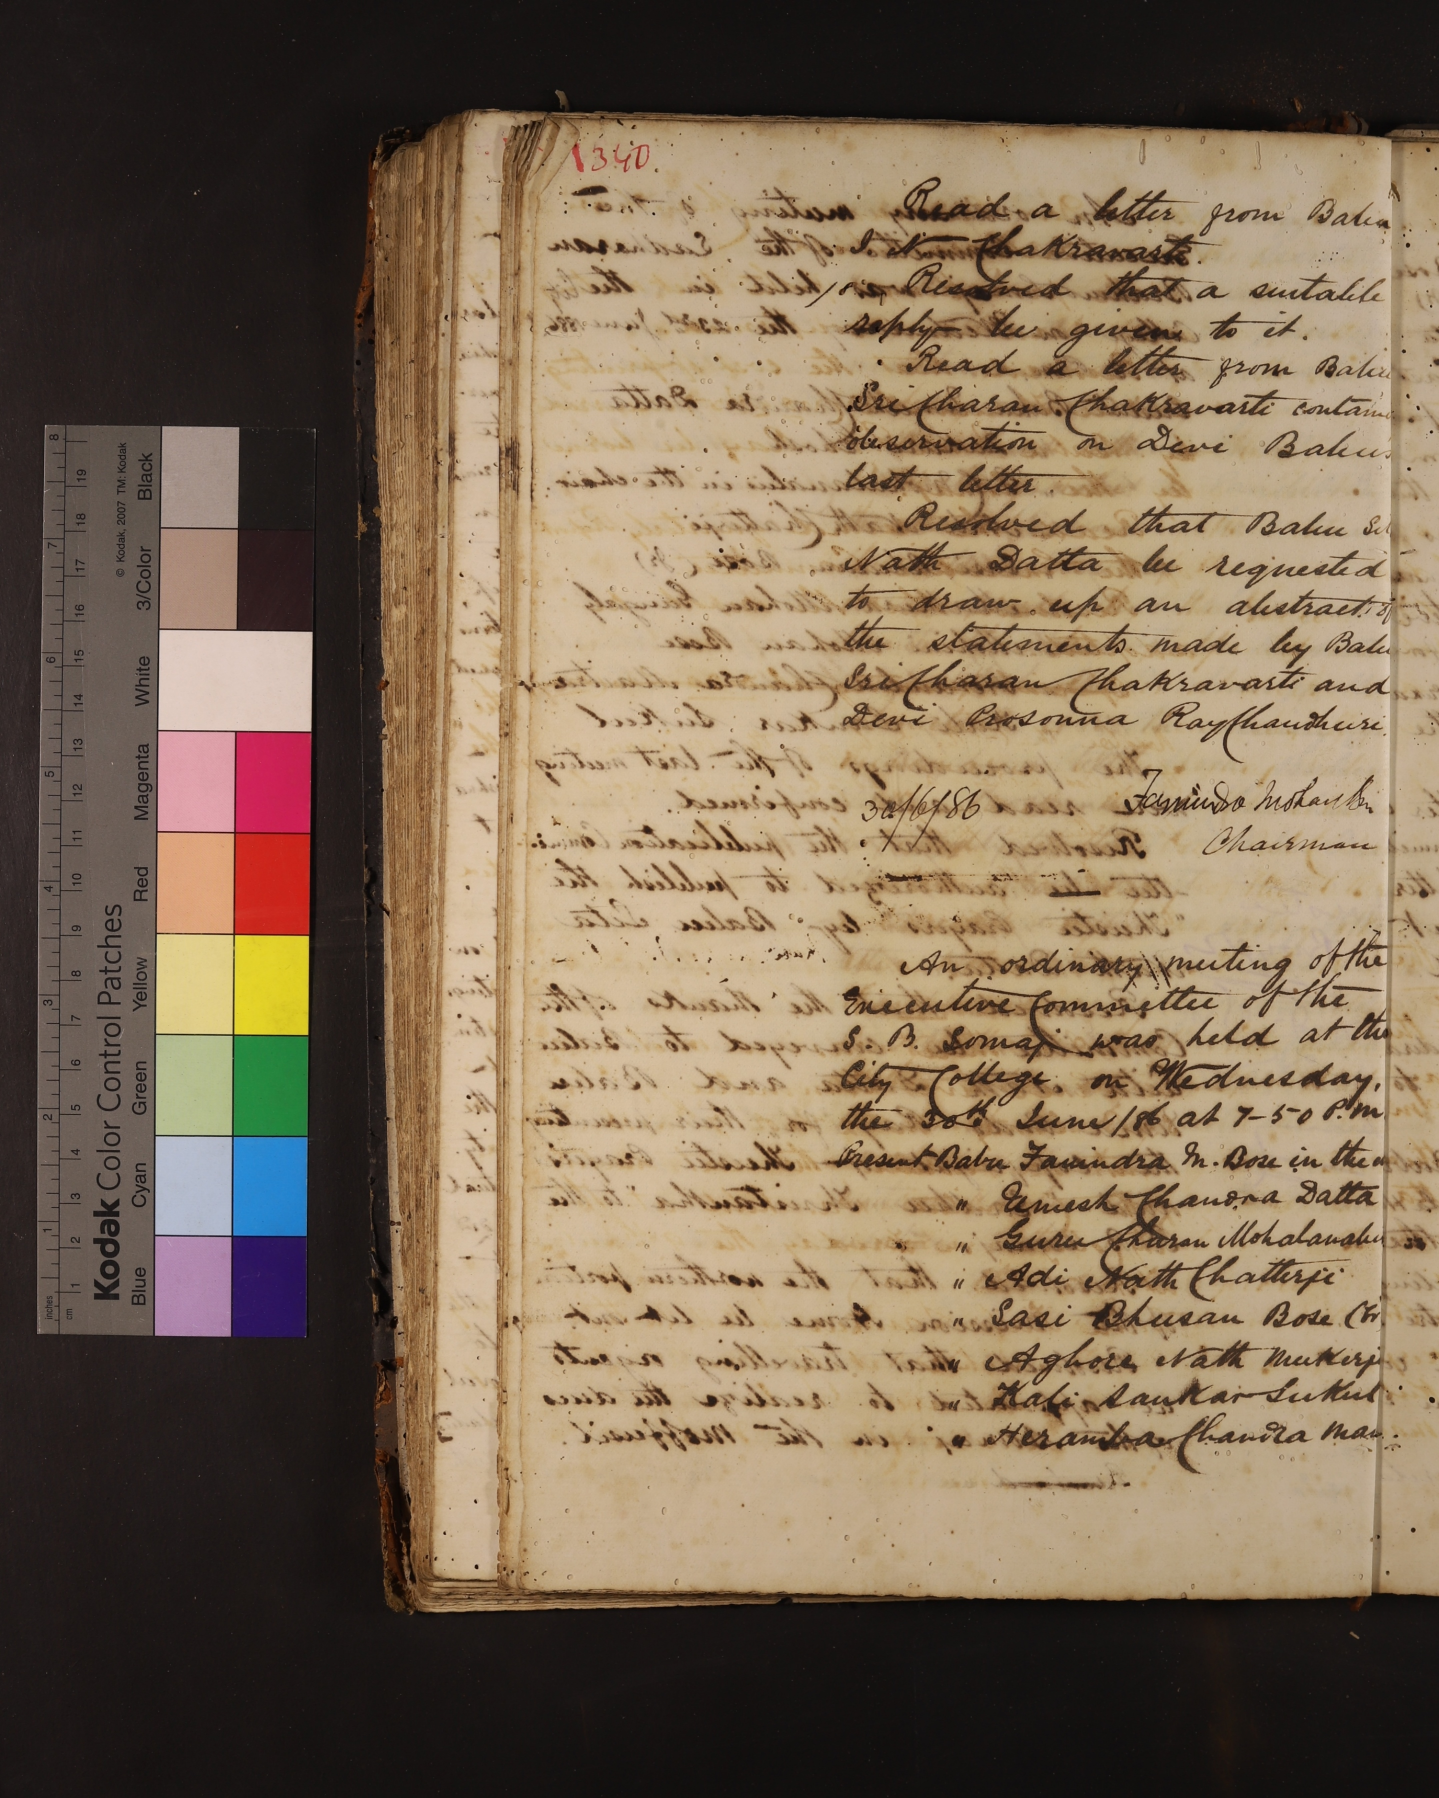 340.
Read a letter from Babu
I. N. Chakravarti.
Resolved that a suitable
reply be given to it.
Read a letter from Babu
Sri Charan Chakravarti contain
observation on Devi Babu's
last letter.
Resolved that Babu
Nath Datta be requested
to draw up an abstract of
the statements made by Babu
Sri Charan Chakravarti and
Devi Prosonna Ray Chaudhuri.
30/6/86
Mohan
Chairman
An ordinary meeting of the
Executive Committee of the
S. B. Somaj was held at the
City College on Wednesday,
the 30th June/86 at 7-50 P.M
Present Babu M. Bose in the
" Umesh Chandra Datta
" Guru Charan Mohalanabis
" Adi Nath Chatterji
" Sasi Bhusan Bose
" Aghore Nath Mukerji
" Kali Sankar Sukul
" Heramba Chandra
Kodak Color Control Patches
© Kodak, 2007 TM: Kodak
Blue
Cyan
Green
Yellow
Red
Magenta
White
3/Color
Black
inches
1
2
3
4
5
6
7
8
cm
1
2
3
4
5
6
7
8
9
10
11
12
13
14
15
16
17
18
19